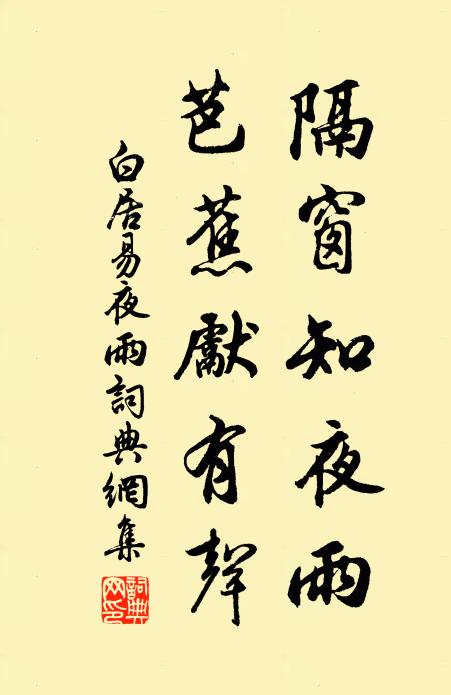 隔窗知夜雨
芭蕉獻有聲
白居易夜雨詞典網集
詞典
网印